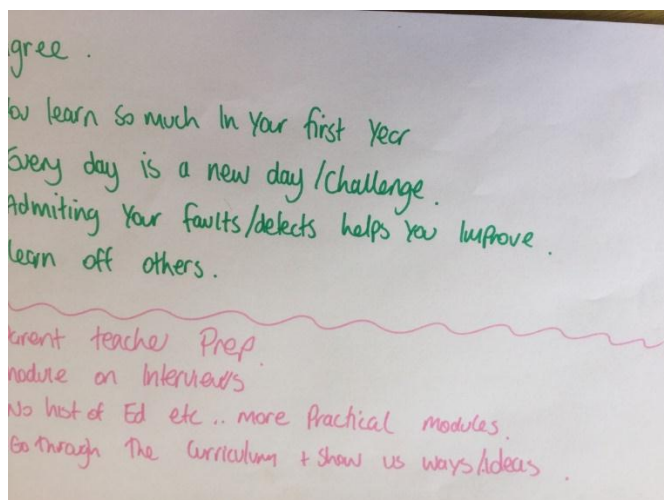 gree .
ou learn so much In Your first Year
Every day is a new day/challenge.
Admiting Your faults/defects helps You Improve .
Learn off others .
arent teacher Prep
module on Interviews
No hist of Ed etc .. more Practical modules.
Go Through The Curriculum + Show us ways/ideas .